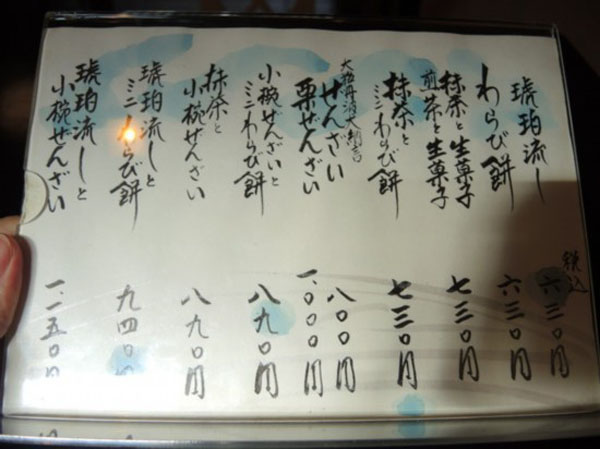 税込
琥珀流し 六三〇円
わらび餅 六三〇円
抹茶と生菓子
煎茶と生菓子 七三〇円
抹茶と
ミニわらび餅 七三〇円
大粒丹波大納言
ぜんざい 八〇〇円
栗ぜんざい 一、〇〇〇円
小椀ぜんざいと
ミニわらび餅 八九〇円
抹茶と
小椀ぜんざい 八九〇円
琥珀流しと
ミニわらび餅 九四〇円
琥珀流しと
小椀ぜんざい 一一五〇円